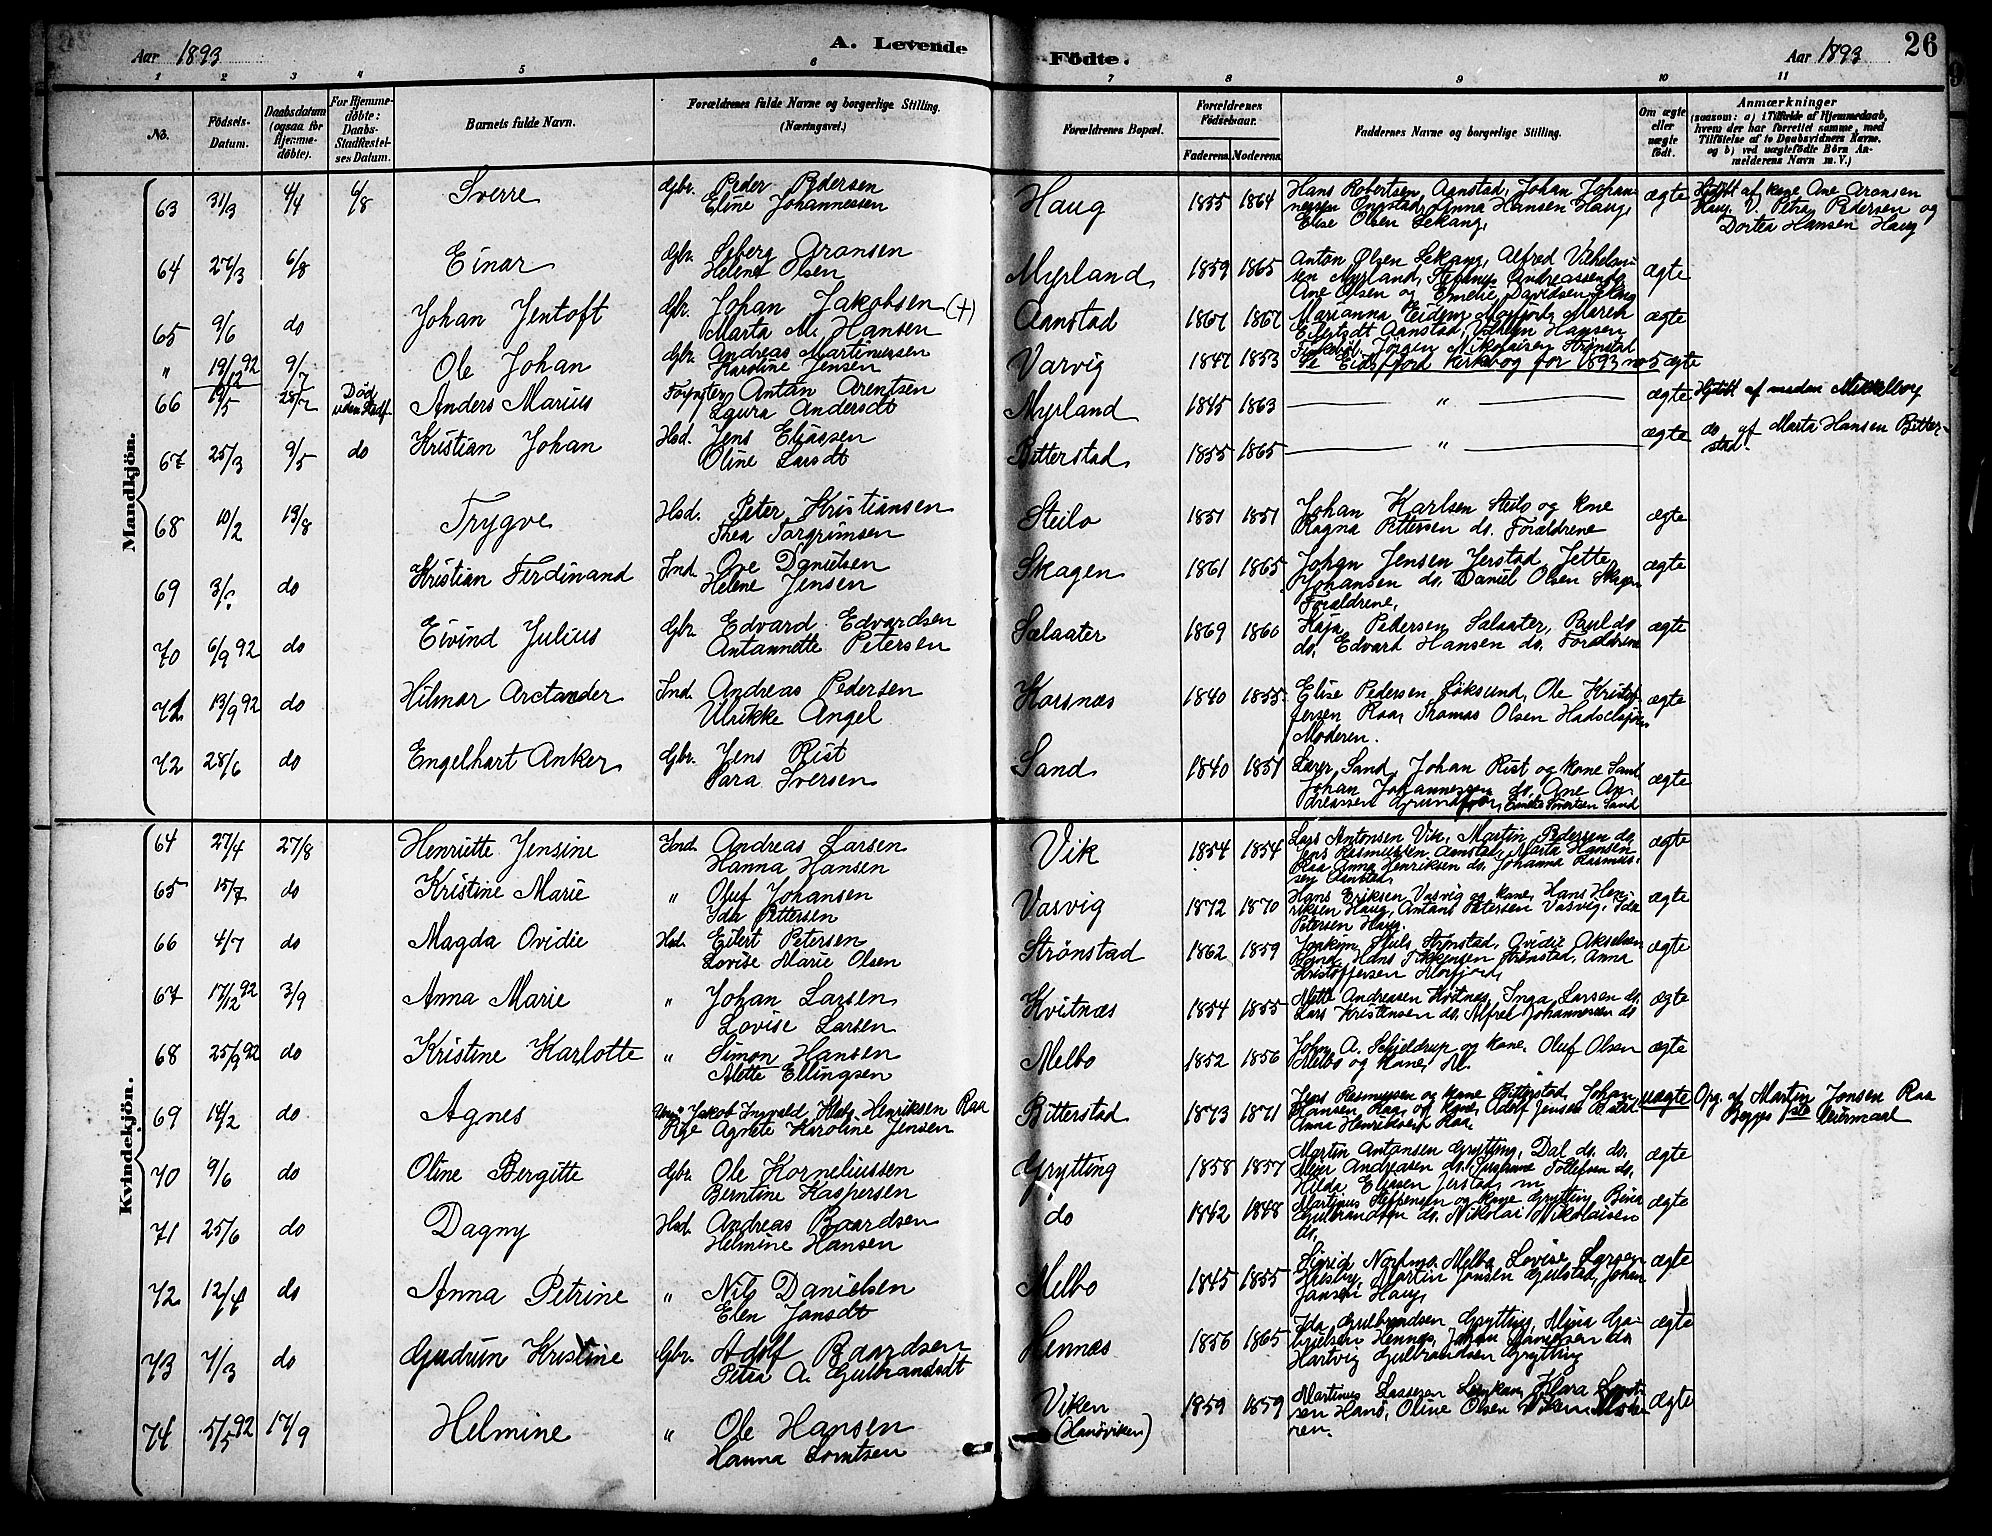 Aar 1893
A. Levende
Födte.
Aar 1893
26
1 2 3 4 5 6 7 8 9 10 11
No.
Födsels-
Datum.
Daabsdatum
(ogsaa for
Hjemme-
döbte).
For Hjemme-
döbte:
Daabs-
Stadfæstel-
ses Datum.
Barnets fulde Navn.
Forældrenes fulde Navne og borgerlige Stilling.
(Næringsvei.)
Forældrenes Bopæl.
Forældrenes
Födselsaar.
Faderens. Moderens.
Faddernes Navne og borgerlige Stilling.
Om ægte
eller
uægte
födt.
Anmærkninger
(saasom: a) i Tilfælde af Hjemmedaab,
hvem der har forrettet samme, med
Tilföielse af to Daabsvidners Navne.
og b) ved uægtefödte Börn An-
melderens Navn m. V.)
Mandkjön.
63 31/3 4/4 6/8 Sverre Gbr. Peder Pedersen
Eline Johannessen
Haug 1855 1864 Hans Robertsen Aanstad, Johan Johan-
nessen Aanstad, Anna Hansen Haug,
Elise Olsen Lekang,
ægte Hjdøbt af kone Ane Aronsen
Haug. V. Petra Pedersen og
Dortea Hansen Haug
64 27/3 6/8 Einar Gbr. Seberg Aronsen
Helene Olsen
Myrland 1859 1865 Anton Olsen Lekang, Alfred Vilhelm-
sen Myrland, Andreassen do
Ane Olsen og Emelie Davidsen
ægte
65 9/6 do Johan Jentoft Gbr. Johan Jakobsen (+)
Marta M. Hansen
Aanstad 1867 1867 Marianna Eidem Morfjord, Maren
Eilertsdt Aanstad, Hansen
ægte
" 19/12 92 9/7 Ole Johan Gbr. Andreas Martinussen
Karoline Jensen
Varvig 1847 1853 Jörgen Nikolaisen Strønstad
Se Eidsfjord Kirkebog for 1893 no 5 ægte
66 19/5 28/7 Død
uden Stadf.
Anders Marius Antan Arentsen
Laura Andersdt
Myrland 1845 1863 " ægte Hjdøbt af maden Mikkelborg
67 25/3 9/5 do Kristian Johan Hsd. Jens Eliassen
Oline Larsdt
Bitterstad 1855 1865 " ægte do. af Marta Hansen Bitter-
stad.
68 10/2 13/8 Trygve Hsd. Peter Kristiansen
Thea Torgrimsen
Steilo 1851 1851 Johan Karlsen Steilo og kone
Ragna Pettersen do. Forældrene
ægte
69 3/6 do Kristian Ferdinand Ind. Ove Danielsen
Helene Jensen
Skagen 1861 1865 Johan Jensen Jerstad, Jette
Johansen do. Daniel Olsen Skagen
Forældrene,
ægte
70 6/9 92 do Eivind Julius Gbr. Edvard Edvardsen
Antannette Petersen
Sælaater 1869 1860 Kaja Pedersen Sælaater, Paul do
do. Edvart Hansen do. Forældrene
ægte
71 13/9 92 do Hilmar Arctander Ind. Andreas Pedersen
Ulrikke Angel
Korsnæs 1840 1855 Elise Pedersen Löksund, Ole Kristof-
fersen Raa, Thomas Olsen Hadselsjøen
Moderen.
ægte
72 28/6 do Engelhart Anker Gbr. Jens Rist
Sara Iversen
Sand 1840 1851 Lærer Sand, Johan Rist og kone Sand
Johan Johannessen do. Ane An-
dreassen Grundfør, Sand
ægte
Kvindekjön.
64 27/4 27/8 Henriette Jensine Ind. Andreas Larsen
Hanna Hansen
Vik 1854 1854 Lars Antonsen Vik, Martin Pedersen do
Jens Rasmussen Aanstad, Marta Hansen
Raa, Anna Henriksen do. Johanna Rasmus-
sen Aanstad,
ægte
65 15/7 do Kristine Marie " Oluf Johansen
Ida Pettersen
Vasvig 1872 1870 Hans Eriksen Vasvig og kone, Hans Hen-
riksen Haug, Antans Petersen Vasvig, Ida
Petersen Haug.
ægte
66 4/7 do Magda Ovidie Hsd. Eilert Petersen
Lovise Marie Olsen
Strønstad 1862 1859 Joakim Strønstad, Ovidie Akselsen
Hans Strønstad, Anna
Kristoffersen Morfjord,
ægte
67 17/12 92 3/9 Anna Marie " Johan Larsen
Lovise Larsen
Kvitnæs 1854 1855 Mette Andreasen Kvitnes, Inga Larsen do.
Lars Kristensen do. Alfred Johannessen do
ægte
68 25/9 92 do Kristine Karlotte " Simon Hansen
Alette Ellingsen
Melbo 1852 1856 John A. Schjeldrup og kone. Oluf Olsen
Melbo og kone, M.
ægte
69 14/2 do Agnes Jakob Ingvald Henriksen Raa
Pige Agnete Karoline Jensen
Bitterstad 1873 1871 Jens Rasmussen og kone Bitterstad, Johan
Hansen Raa og kone, Adolf Jensen
Anna Henriksen Raa
uægte Opg. af Martin Jonsen Raa
Begges 1ste Leiermaal
70 9/6 do Oline Bergitte Gbr. Ole Korneliussen
Berntine Kaspersen
Grytting 1858 1857 Martin Antonsen Grytting, Dal do. do.
Andreasen do. Tollefsen do.
Hilda Eliasen Jerstad, m
ægte
71 25/6 do Dagny Hsd. Andreas Baardsen
Helmine Hansen
do 1842 1848 Martinus Steffensen og kone Grytting, Bina
Gulbrandsen do. Nikolai Nikolaisen
do.
ægte
72 12/4 do Anna Petrine " Nils Danielsen
Elen Jansdt
Melbo 1845 1855 Sigrid Melbo, Lovise Larsen
Husby, Martin Jonsen Gulstad, Johan
Jansen Haug,
ægte
73 7/3 do Gudrun Kristine Gbr. Adolf Baardsen
Petra A. Gulbrandsdt
Hennæs 1856 1865 Ida Gulbrandsen Grytting, Alina Ga-
brielsen Hennes, Johan Danielsen do
Hartvig Gulbrandsen Grytting
ægte
74 5/5 92 17/9 Helmine " Ole Hansen
Hanna Lorntsen
Viken
(Hanøviken)
1859 1859 Martinus Lassesen Klara
sen Hanø, Oline Olsen Viken, Mode-
ren.
ægte